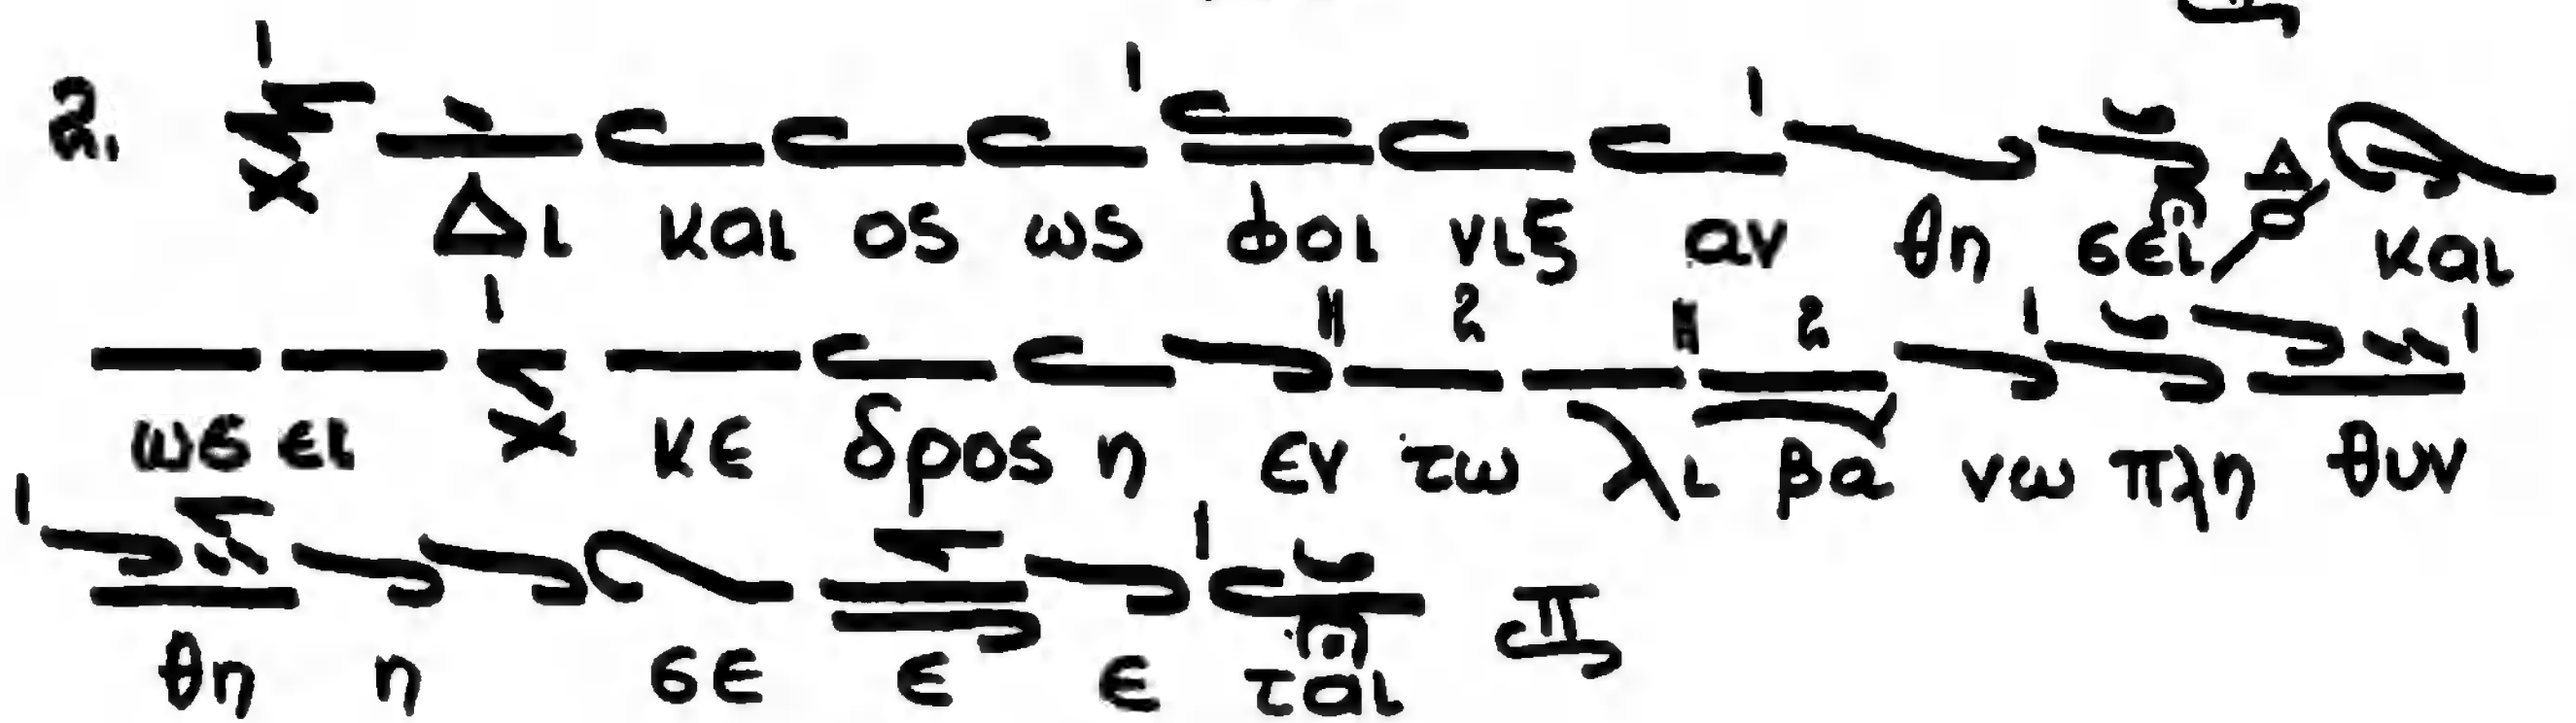 2. Δι και ος ως φοι νιξ αν θη σει και
ωσ ει κε δρος η εν τω λι βα νω πλη θυν
θη η σε ε ε ται